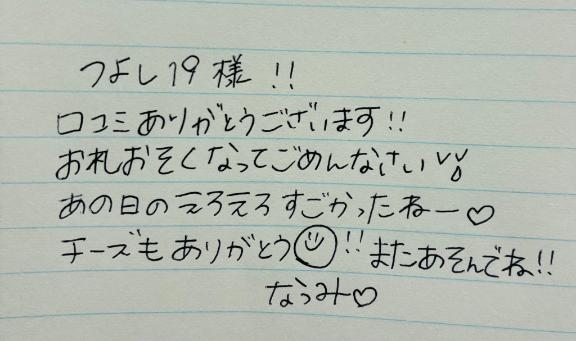 つよし19様!!
口コミありがとうございます!!
お札おそくなってごめんなさい
あの日のえろえろすごかったねー♡
チーズもありがとう☺!!またあそんでね!!
なうみ♡